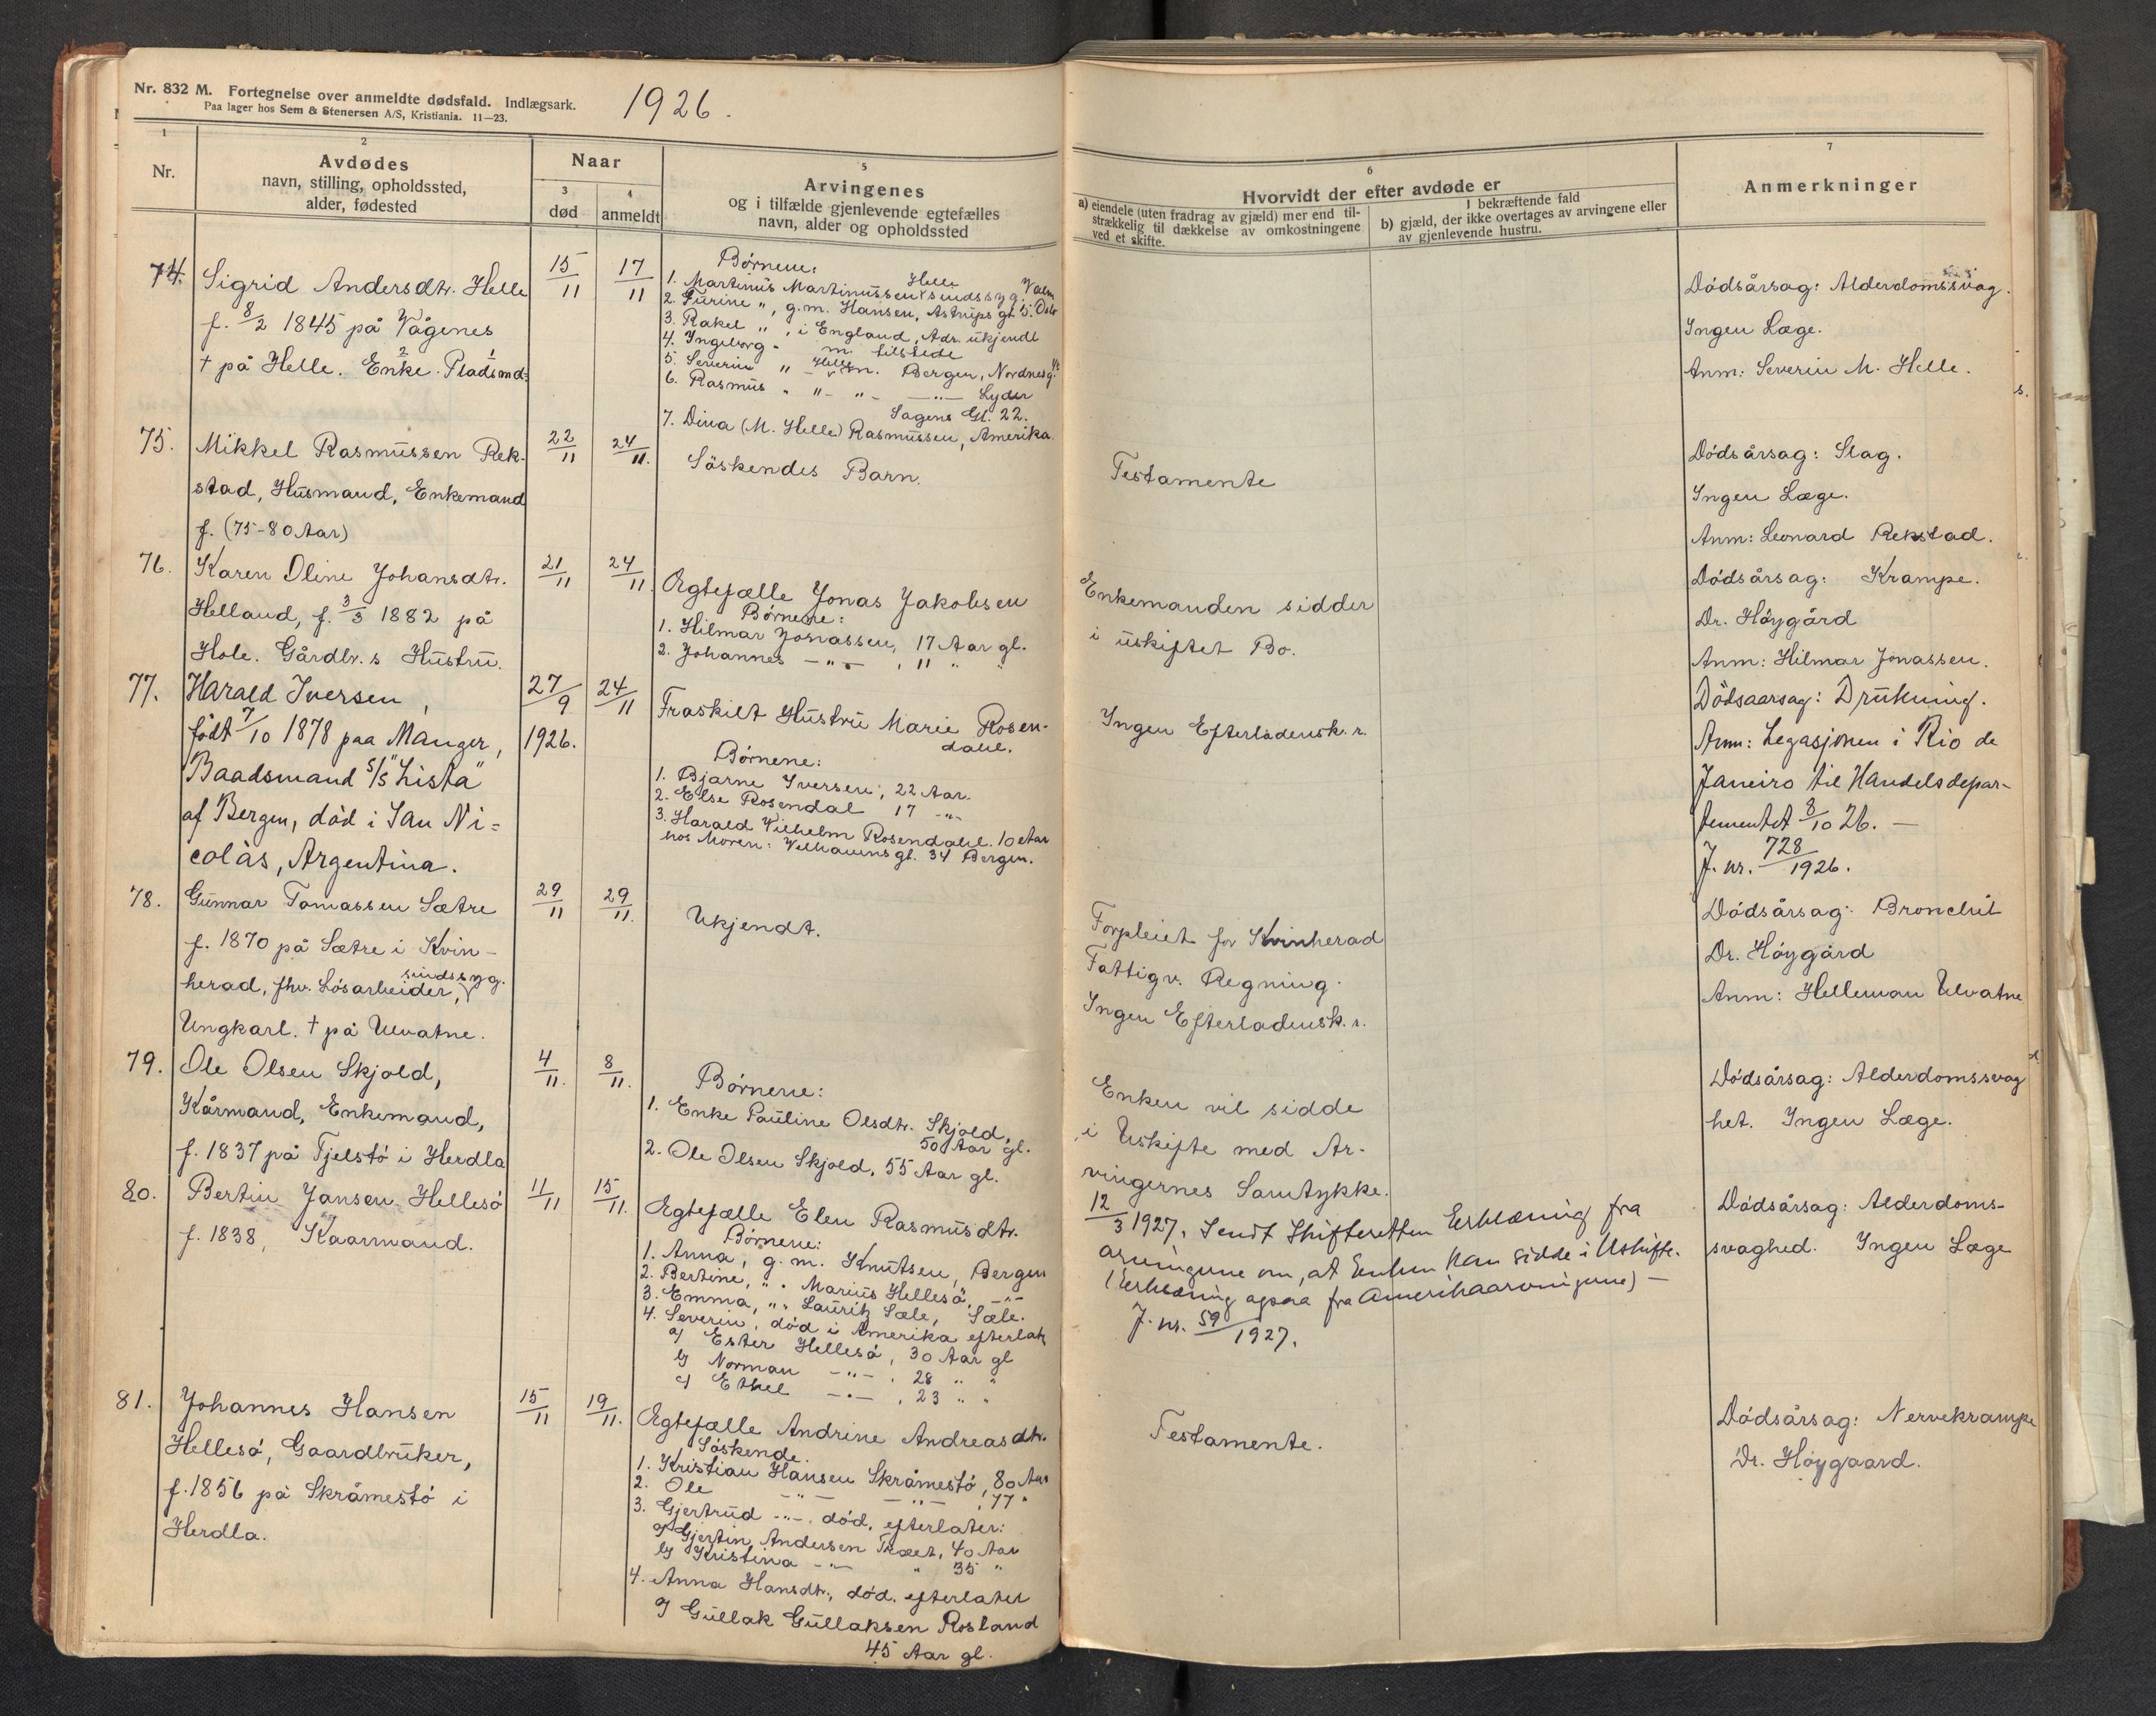 Nr. 832 M. Fortegnelse over anmeldte dødsfald. Indlægsark.
Paa lager hos Sem & Stenersen A/S, Kristiania. 11—23.
1926.
1
Nr.
2
Avdødes
navn, stilling, opholdssted,
alder, fødested
Naar
3
død
4
anmeldt
5
Arvingenes
og i tilfælde gjenlevende egtefælles
navn, alder og opholdssted
6
Hvorvidt der efter avdøde er
a) eiendele (uten fradrag av gjæld) mer end til-
strækkelig til dækkelse av omkostningene
ved et skifte.
I bekræftende fald
b) gjæld, der ikke overtages av arvingene eller
av gjenlevende hustru.
7
Anmerkninger
74.
Sigrid Andersdtr. Helle
f. 8/2 1845 på Vågenes
† på Helle. Enke. Pladsmd:
2 1
15/11
17/11
Børnene:
1. Martinus Martinussen Helle sindssyg
2. Turine ", g.m. Hansen, Astrups gt. 5. Oslo
3. Rakel ", i England, Adr. ukjendt
4. Ingeborg " m. tilstede
5. Severin " Helle Bergen, Nordnesg.
6. Rasmus " " " —"— Lyder
Sagens Gt. 22.
7. Dina (M. Helle) Rasmussen, Amerika.
Dødsårsag: Alderdomssvag.
Ingen Læge.
Anm: Severin M. Helle.
75.
Mikkel Rasmussen Rek-
stad, Husmand, Enkemand
f. (75-80 Aar)
22/11
24/11.
Söskendes Barn.
Testamente
Dødsårsag: Slag.
Ingen Læge.
Anm: Leonard Rekstad.
76.
Karen Oline Johansdtr.
Helland, f. 3/3 1882 på
Hole. Gårdbr.s Hustru.
21/11
24/11.
Ægtefælle Jonas Jakobsen
Børnene:
1. Hilmar Jonassen, 17 Aar gl.
2. Johannes —"— , 11 " "
Enkemanden sidder
i uskiftet Bo.
Dødsårsag: Krampe.
Dr. Høygård
Anm: Hilmar Jonassen.
77.
Harald Iversen,
født 7/10 1878 paa Manger,
Baadsmand S/S "Lista"
af Bergen, död i San Ni=
colàs, Argentina.
27/9
1926.
24/11
Fraskilt Hustru Marie Rosen-
dahl.
Børnene:
1. Bjarne Iversen, 22 Aar.
2. Else Rosendal 17 -"-
3. Harald Vilhelm Rosendahl. 10 Aar
hos Moren: Welhavensgt. 34 Bergen.
Ingen Efterladensk.r.
Dödsaarsag: Drukning.
Anm: Legasjonen i Rio de
Janeiro til Handelsdepar-
tementet 8/10 26. —
J. nr. 728/1926.
78.
Gunnar Tomassen Sætre
f. 1870 på Sætre i Kvin-
herad, fhv. Løsarbeider, sindssyg.
Ungkarl. † på Ulvatne.
29/11
29/11.
Ukjendt.
Forpleiet for Kvinherad
Fattigv. Regning.
Ingen Efterladensk.r.
Dødsårsag: Bronchit
Dr. Høygård
Anm: Helleman Ulvatne
79.
Ole Olsen Skjold,
Kårmand, Enkemand,
f. 1837 på Tjelstø i Herdla
4/11.
8/11.
Børnene:
1. Enke Pauline Olsdtr. Skjold,
50 Aar gl.
2. Ole Olsen Skjold, 55 Aar gl.
Enken vil sidde
i Uskifte med Ar-
vingernes Samtykke.
Dødsårsag: Alderdomssvag
het. Ingen Læge.
80.
Bertin Jansen Hellesø
f. 1838, Kaarmand.
11/11
15/11.
Egtefælle Elen Rasmusdtr.
Børnene:
1. Anna, g.m. Knutsen, Bergen
2. Bertine, " " Marius Hellesø, -"-
3. Emma, " " Lauritz Sæle, Sæle.
4. Severin, død i Amerika efterlat
a) Ester Hellesø, 30 Aar gl
b) Norman —"— , 28 " "
c) Ethel —"— , 23 " "
12/3 1927. Sendt Skifteretten Erklæring fra
arvingene om, at Enken kan sidde i Uskifte.
(Erklæring ogsaa fra Amerikaarvingene) —
J. nr. 59/1927.
Dødsårsag: Alderdoms-
svaghed. Ingen Læge
81.
Johannes Hansen
Hellesø, Gaardbruker,
f. 1856 på Skråmestø i
Herdla.
15/11
19/11.
Egtefælle Andrine Andreasdtr.
Søskende.
1. Kristian Hansen Skråmestø, 80 Aar
2. Ole —"— —"— , 77 "
3. Gjertrud -"-, død, efterlater:
a) Gjertin Andersen Træet, 40 Aar
b) Kristina —"— " 35 "
4. Anna Hansdtr., død, efterlater
a) Gullak Gullaksen Rosland
45 Aar gl.
Testamente.
Dødsårsag: Nervekrampe
Dr. Høygaard.